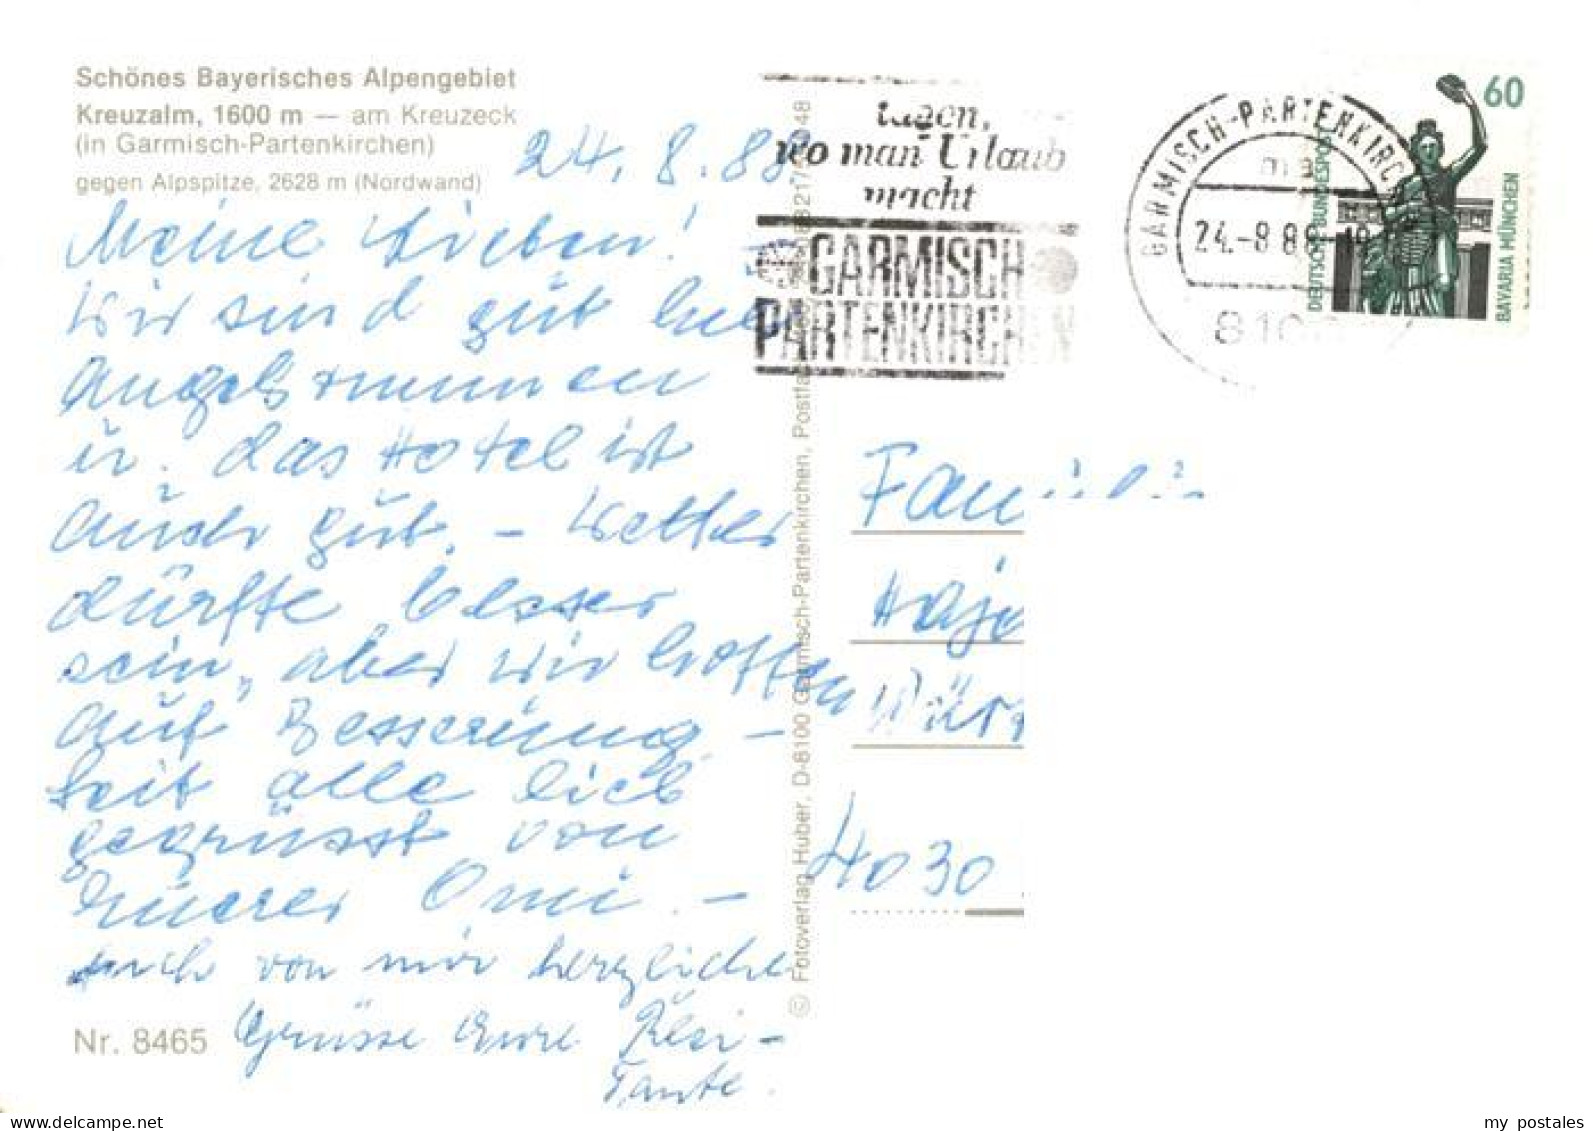 Schönes Bayerisches Alpengebiet
Kreuzalm, 1600 m — am Kreuzeck
(in Garmisch-Partenkirchen)
gegen Alpspitze, 2628 m (Nordwand)
24. 8. 88
Meine Lieben!
Wir sind gut hier
angekommen
u. das Hotel ist
auch gut. – Wetter
dürfte besser
sein, aber wir hoffen
auf Besserung –
Seit alle lieb
gegrüsst von
Eurer Omi. –
auch von mir herzliche
Grüsse Eure Resi-
Tante.
Nr. 8465
© Fotoverlag Huber, D-8100 Garmisch-Partenkirchen, Postfach
tagen,
wo man Urlaub
macht
GARMISCH
PARTENKIRCHEN
GARMISCH-PARTENKIRCH
24.-8.88-19
810
60
DEUTSCHE BUNDESPOST
BAVARIA MÜNCHEN
Familie
4030
my postales